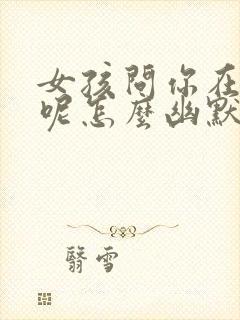 女孩问你在
呢怎麼幽默
翳雪